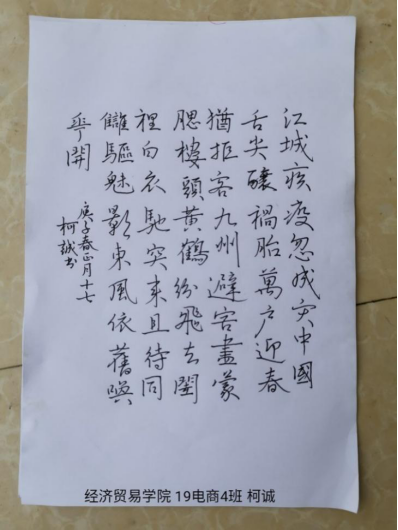 江城疾疫忽成灾中國
舌尖釀禍胎萬户迎春
猶拒客九州避害盡蒙
腮樓頭黄鶴紛飛去閣
裡白衣馳突来且待同
讎驅魅影東風依舊喚
花開
庚子春正月十七
柯誠书
经济贸易学院 19电商4班 柯诚